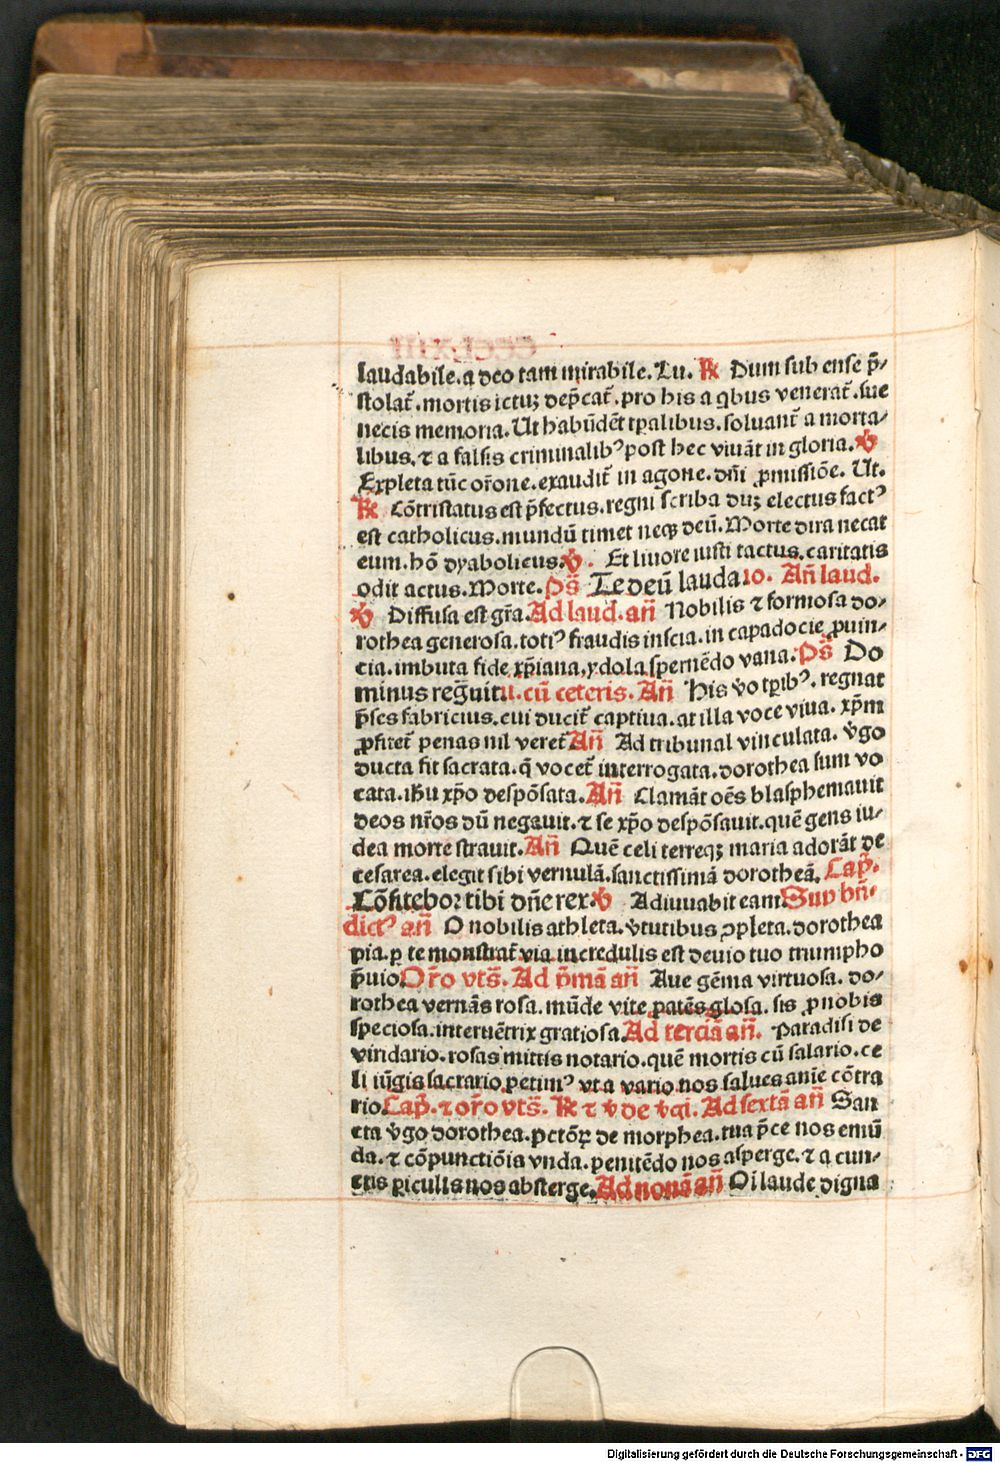 laudabile.a deo tam mirabile.Lu. ℟ Dum sub ense p̄-
stolat᷑.mortis ictuꝫ dep̄cat᷑.pro his a qbus venerat᷑.sue
necis memoria.Ut habūdēt tꝑalibus.soluant᷑ a morta-
libus.⁊ a falsis criminalibꝰ post hec viuāt in gloria.℣
Expleta tūc or̄one.exaudit᷑ in agone.dn̄i ꝓmissiōe. Ut.
℟ Cōtristatus est p̄fectus.regni scriba duꝫ electus factꝰ
est catholicus.mundū timet neqꝫ deū.Morte dira necat
eum.hō dyabolicus.℣. Et liuore iusti tactus.caritatis
odit actus.Morte.Ps̄ Te deū lauda10. Añ laud.
℣ Diffusa est gr̄a.Ad laud.añ Nobilis ⁊ formosa do-
rothea generosa.totiꝰ fraudis inscia.in capadocie ꝓuin-
cia.imbuta fide xp̄iana,ydola spernēdo vana.Ps̄ Do
minus reg̅uitu.cū ceteris. Añ His v̄o tꝑibꝰ.regnat
p̄ses fabricius.cui ducit᷑ captiua.at illa voce viua. xp̄m
ꝓfitet᷑ penas nil veret᷑ Añ Ad tribunal vinculata. v̄go
ducta fit sacrata.q̄ vocet᷑ interrogata.dorothea sum vo
cata.ihu xp̄o despōsata.Añ Clamāt oēs blasphemauit
deos nr̄os dū negauit.⁊ se xp̄o despōsauit.quē gens iu-
dea morte strauit.Añ Quē celi terreqꝫ maria adorāt de
cesarea.elegit sibi vernulā.sanctissimā dorotheā. Cap̄.
Cōfitebor tibi dn̄e rex.℣ Adiuuabit eam Sup bn̄-
dictꝰ añ O nobilis athleta.v̄tutibus ꝯpleta.dorothea
pia.ꝑ te monstrat᷑ via incredulis est deuio tuo triumpho
p̄uio Or̄o vts̄. Ad p̄mā añ Aue gēma virtuosa. do-
rothea vernās rosa. mūde vite ꝑatēs glosa. sis ꝓ nobis
speciosa.interuētrix gratiosa.Ad terciā añ. Paradisi de
viridario.rosas mittis notario.quē mortis cū salario.ce
li iūgis sacrario.petimꝰ vt a vario nos salues anīe cōtra
rio Cap̄.⁊ or̄o vts̄. ℟ ⁊ ℣ de v̄gi. Ad sextā añ San
cta v̄go dorothea.pctōꝝ de morphea.tua p̄ce nos emū
da.⁊ cōpunctiōia vnda.penitēdo nos asperge.⁊ a cun-
ctis ꝑiculis nos absterge.Ad nonā añ Oī laude digna
Digitalisierung gefördert durch die Deutsche Forschungsgemeinschaft - DFG